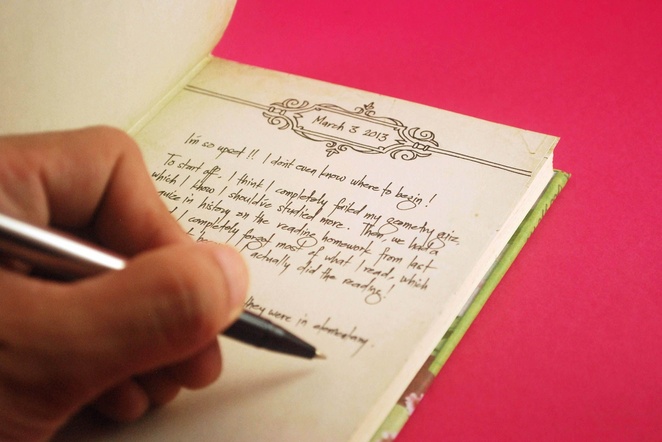 March 3, 2013
I'm so upset!! I don't even know where to begin!
To start off, I think I completely failed my geometry quiz,
which I know I should've studied more. Then, we had a
quiz in history on the reading homework from last
I completely forgot most of what I read, which
I actually did the reading!
they were in elementary.